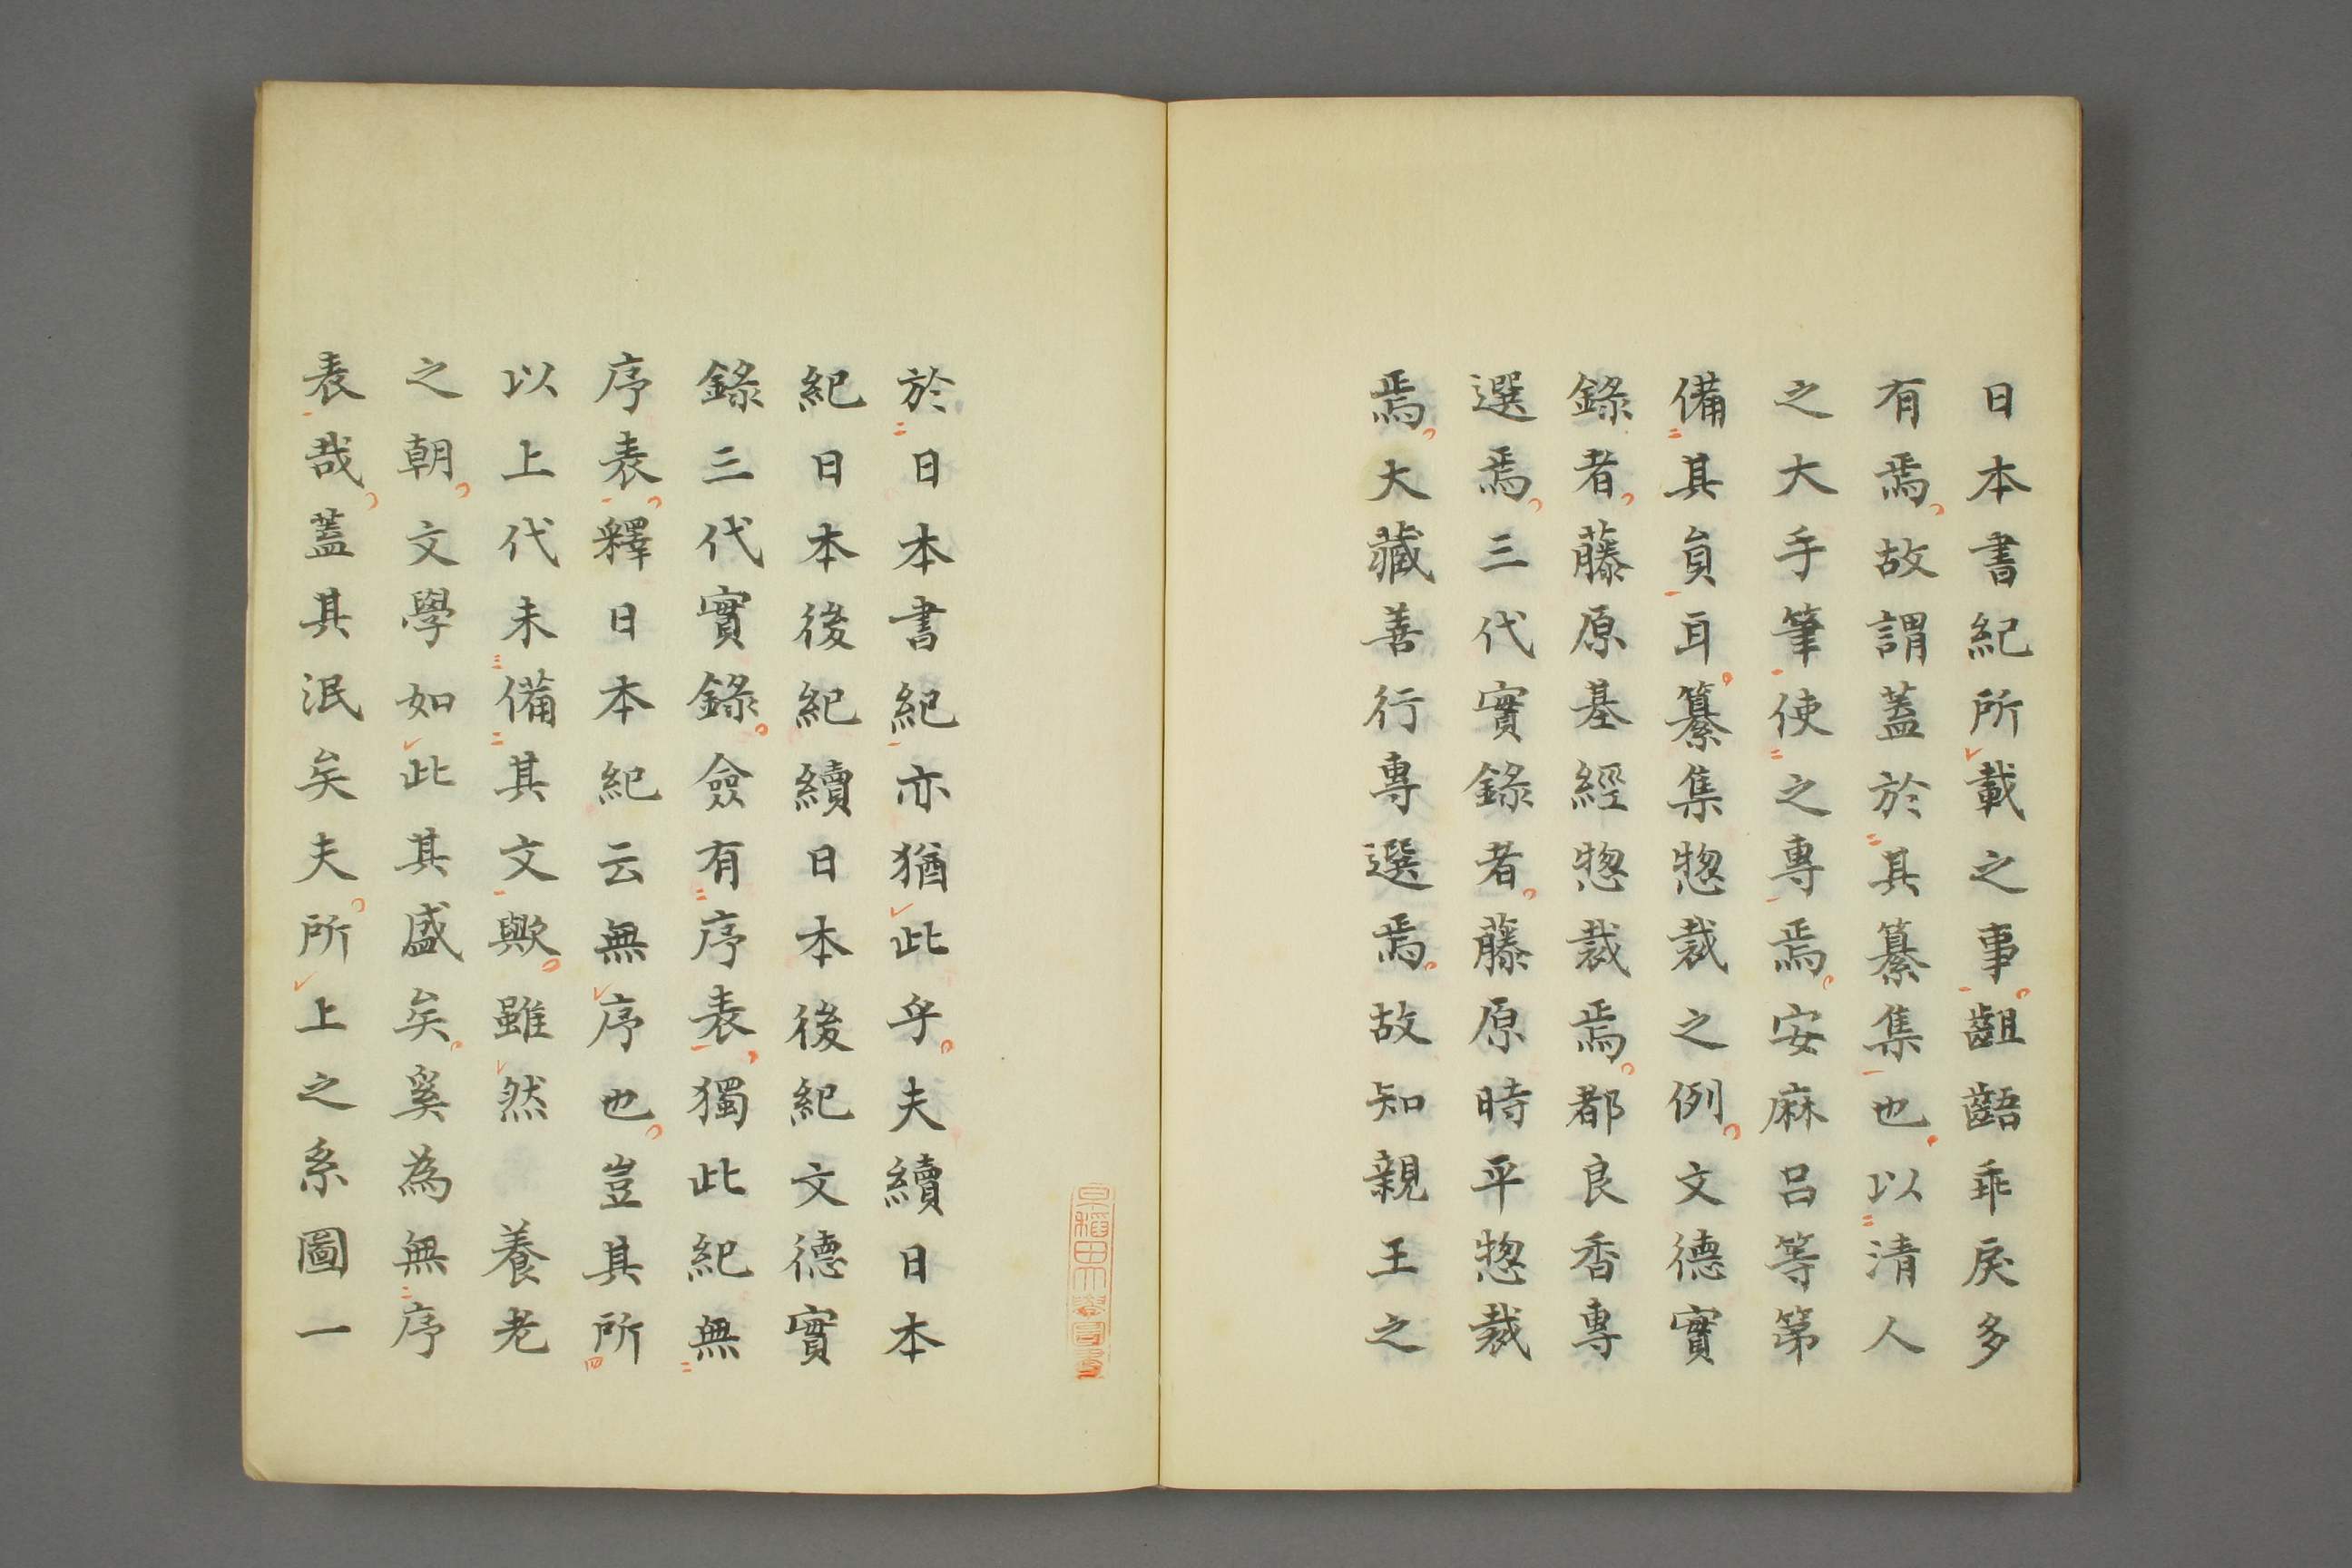 日本書紀所載之事齟齬乖戻多
有焉故謂蓋於其纂集也以清人
之大手筆使之專焉安麻呂等第
備其負耳纂集惣裁之例文德實
錄者藤原基經惣裁焉都良香專
選焉三代實錄者藤原時平惣裁
焉大藏善行專選焉故知親王之
於日本書紀亦猶此乎夫續日本
紀日本後紀續日本後紀文德實
錄三代實錄僉有序表獨此紀無
序表釋日本紀云無序也豈其所
以上代未備其文歟雖然 養老
之朝文學如此其盛矣奚為無序
表哉蓋其泯矣夫所上之系圖一
早稲田大學圖書